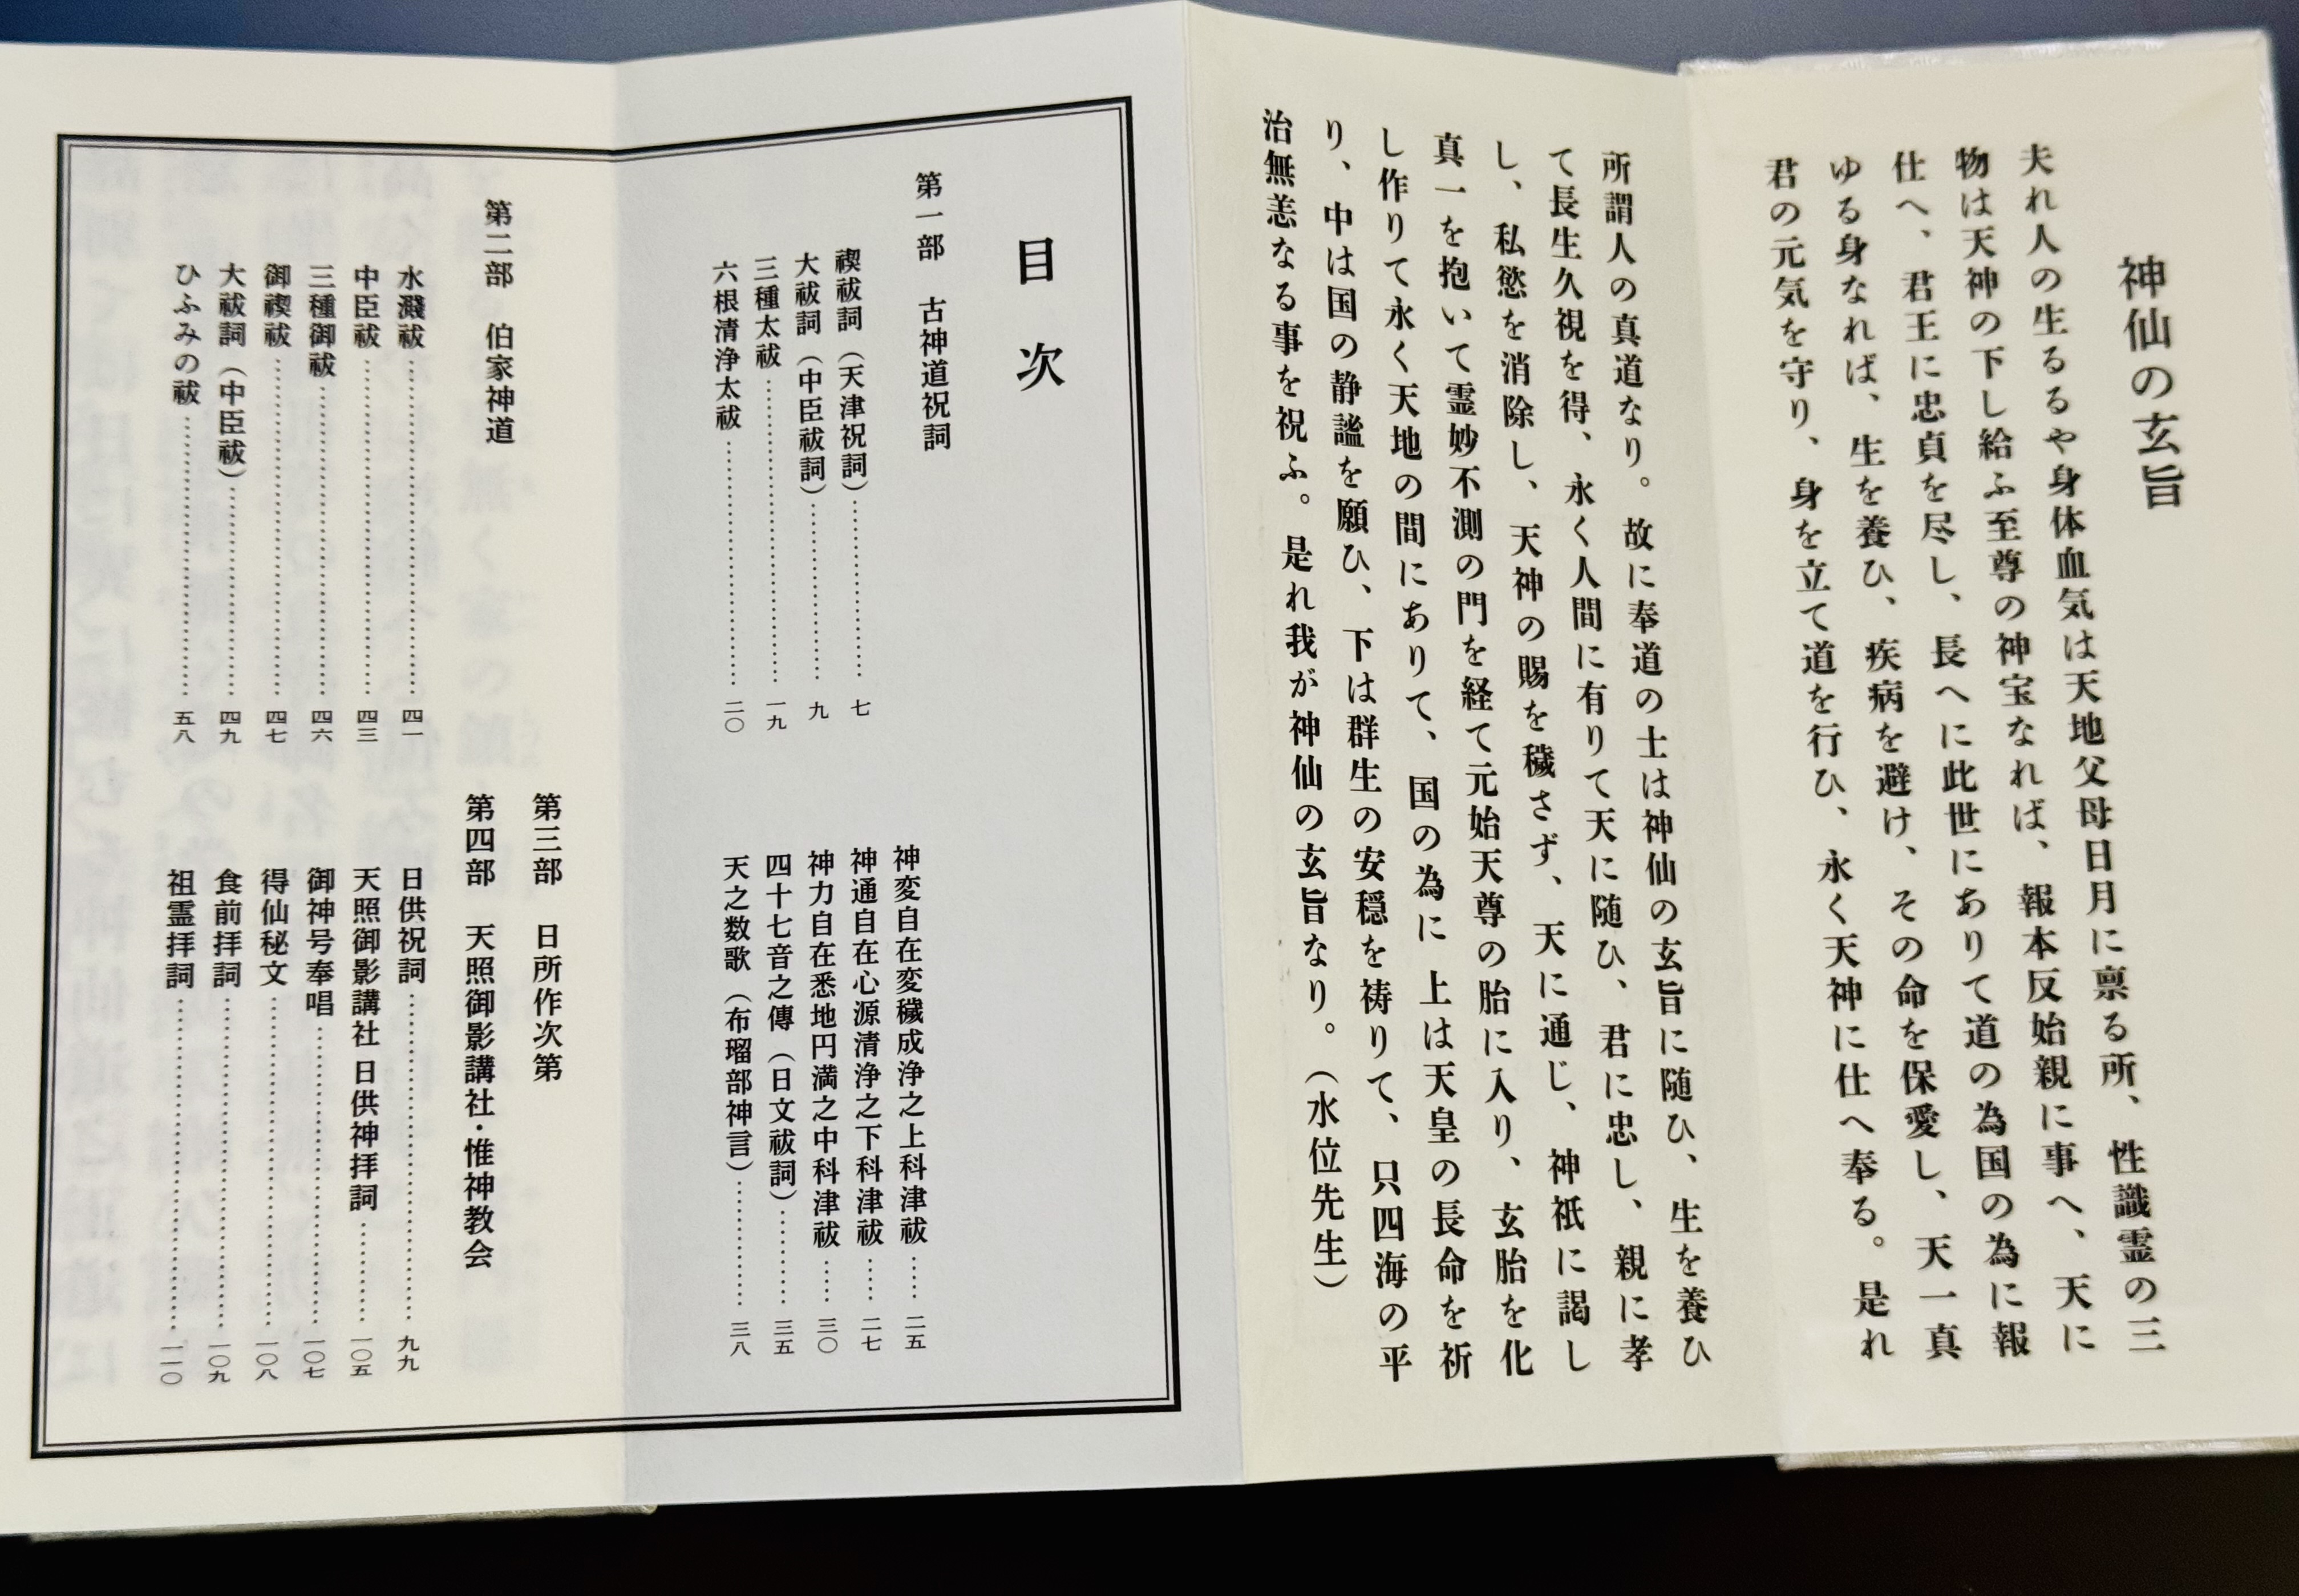 神仙の玄旨
夫れ人の生るるや身体血気は天地父母日月に禀る所、性識霊の三
物は天神の下し給ふ至尊の神宝なれば、報本反始親に事へ、天に
仕へ、君王に忠貞を尽し、長へに此世にありて道の為国の為に報
ゆる身なれば、生を養ひ、疾病を避け、その命を保愛し、天一真
君の元気を守り、身を立て道を行ひ、永く天神に仕へ奉る。是れ
所謂人の真道なり。故に奉道の士は神仙の玄旨に随ひ、生を養ひ
て長生久視を得、永く人間に有りて天に随ひ、君に忠し、親に孝
し、私慾を消除し、天神の賜を穢さず、天に通じ、神祇に謁し
真一を抱いて霊妙不測の門を経て元始天尊の胎に入り、玄胎を化
し作りて永く天地の間にありて、国の為に上は天皇の長命を祈
り、中は国の静謐を願ひ、下は群生の安穏を祷りて、只四海の平
治無恙なる事を祝ふ。是れ我が神仙の玄旨なり。(水位先生)
目次
第一部 古神道祝詞
禊祓詞(天津祝詞)……七
大祓詞(中臣祓詞)……九
三種太祓……一九
六根清浄太祓……二〇
神変自在変穢成浄之上科津祓……二五
神通自在心源清浄之下科津祓……二七
神力自在悉地円満之中科津祓……三〇
四十七音之傳(日文祓詞)……三五
天之数歌(布瑠部神言)……三八
第二部 伯家神道
水潑祓……四一
中臣祓……四三
三種御祓……四六
御禊祓……四七
大祓詞(中臣祓)……四九
ひふみの祓……五八
第三部 日所作次第
第四部 天照御影講社・惟神教会
日供祝詞……九九
天照御影講社 日供神拝詞……一〇五
御神号奉唱……一〇七
得仙秘文……一〇八
食前拝詞……一〇九
祖霊拝詞……一一〇